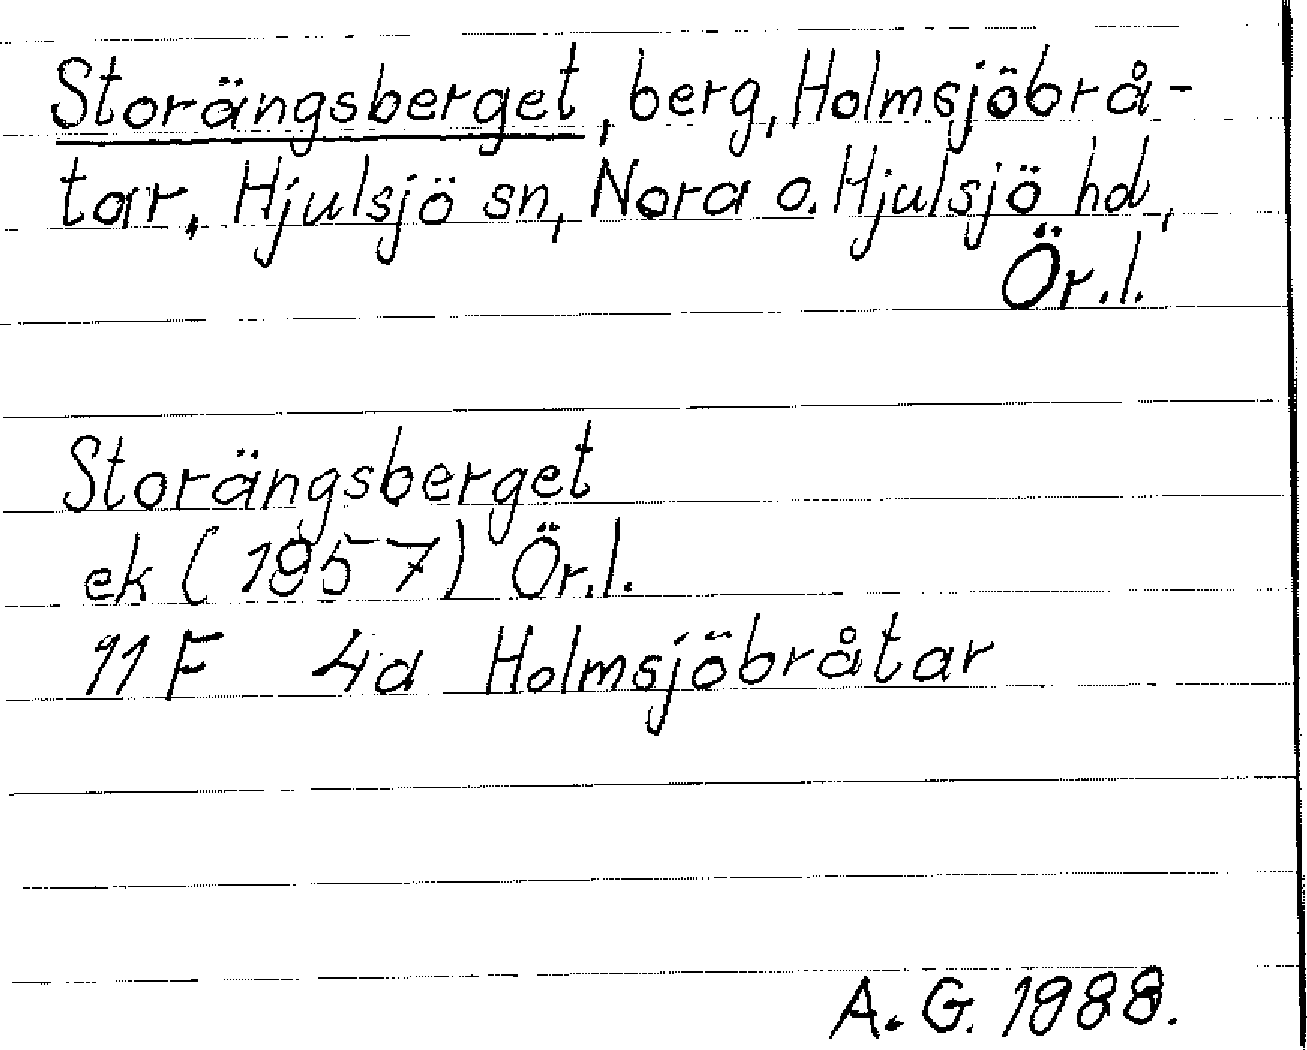 Storängsberget, berg, Holmsjöbrå-
tar, Hjulsjö sn, Nora o. Hjulsjö hd,
Ör.l.
Storängsberget
ek (1957) Ör.l.
11F 4d Holmsjöbråtar
A. G. 1988.